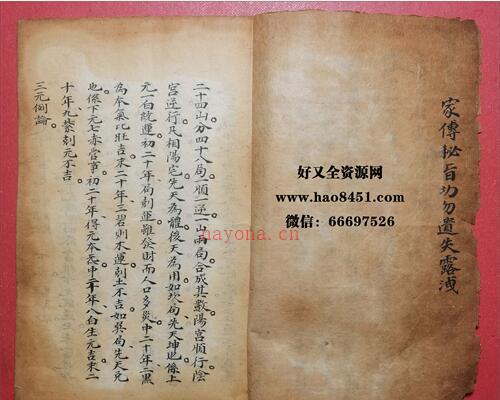 家傳秘旨切勿遺失露洩
二十四山分四十八局一順一逆一山兩局合成其數陽宮順行陰
宮逆行。及相陽宅先天為體後天為用。如坎局先天坤也。係上
元一白統運。初二十年局剋運雖發財而人口多災。中二十年二黑
為本氣比旺吉。末二十年三碧則木運剋土不吉。如巽局先天兌
也。係下元七赤當事。初二十年得元本。中二十年八白生元吉。末二
十年九紫剋元不吉
三元論。
好又全资源网
www.hao8451.com
微信：66697526
nayona.cn